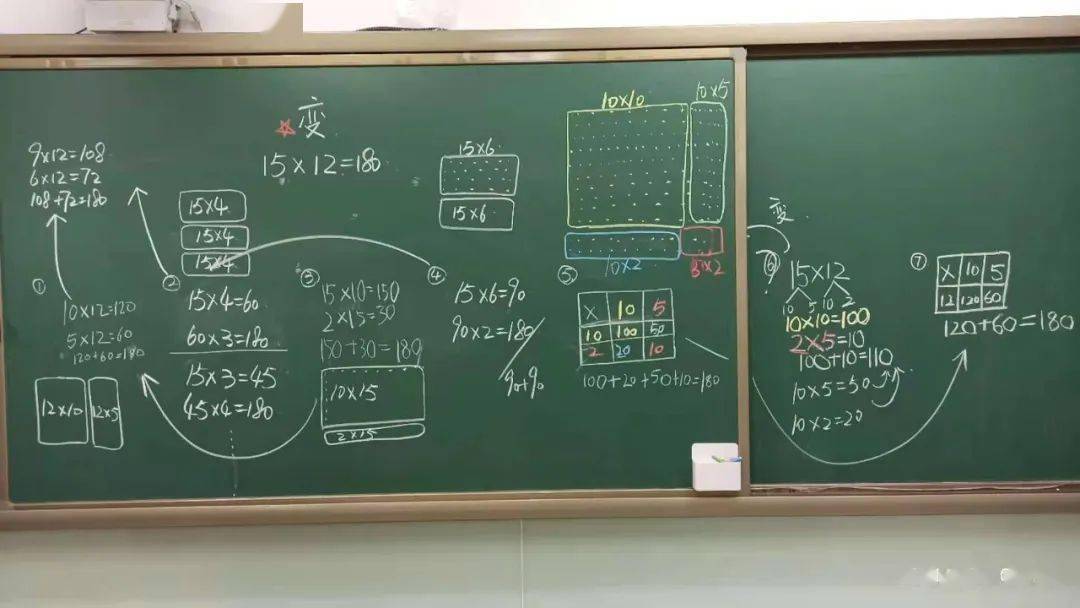 变
15×12=180
9×12=108
6×12=72
108+72=180
①
10×12=120
5×12=60
120+60=180
12×10
12×5
②
15×4
15×4
15×4
15×4=60
60×3=180
15×3=45
45×4=180
③
15×10=150
2×15=30
150+30=180
10×15
2×15
④
15×6
15×6
15×6=90
90×2=180
90+90
⑤
10×10
10×5
10×2
5×2
× 10 5
10 100 50
2 20 10
100+20+50+10=180
变
?
⑥
15×12
10 5 10 2
10×10=100
2×5=10
100+10=110
10×5=50
10×2=20
⑦
× 10 5
12 120 60
120+60=180